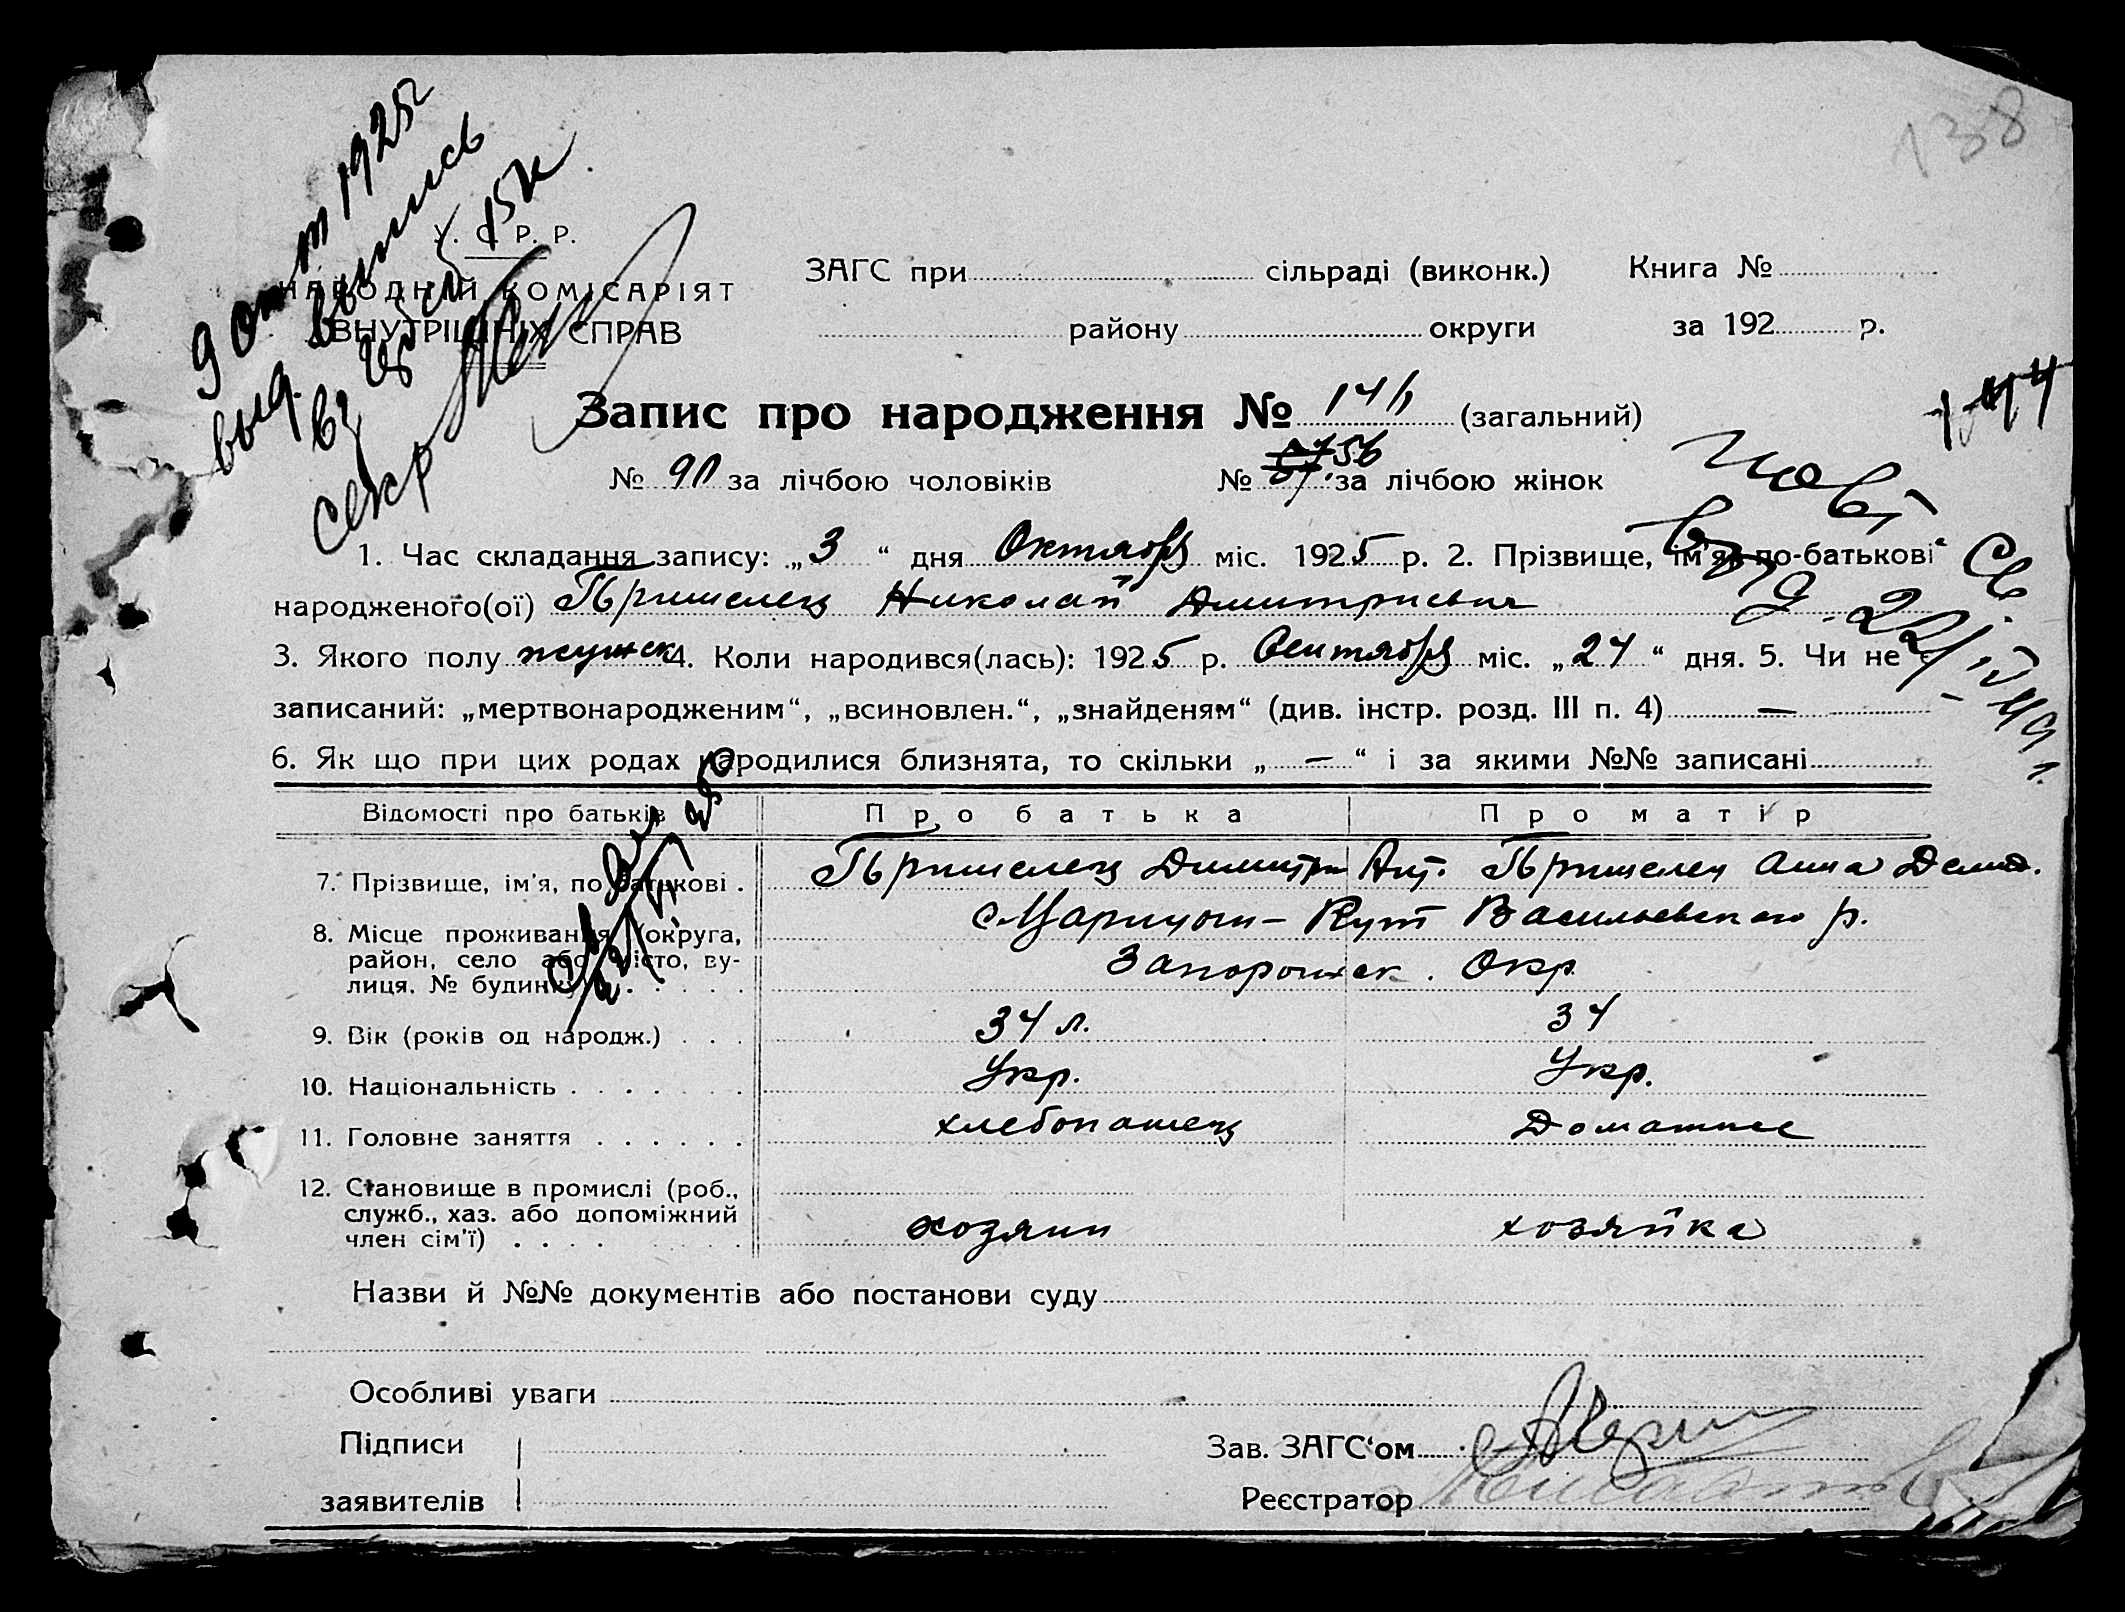 138
9 окт 1925 г
выд. выпись
15 к
секр
У. С. Р. Р.
НАРОДНІЙ КОМІСАРІЯТ
ВНУТРІШНІХ СПРАВ
ЗАГС при сільраді (виконк.) Книга №
району округи за 192 р.
Запис про народження № (загальний)
144
№ 90 за лічбою чоловіків № 56 за лічбою жінок
1. Час складання запису: „3“ дня Октября міс. 1925 р. 2. Прізвище, ім'я, по-батькові
народженого(ої) Пришелец Николай Дмитриевич
3. Якого полу мужск 4. Коли народився(лась): 1925 р. Сентября міс. „24“ дня. 5. Чи не є
записаний: „мертвонародженим“, „всиновлен.“, „знайденям“ (див. інстр. розд. III п. 4) —
6. Як що при цих родах народилися близнята, то скільки „—“ і за якими №№ записані
Відомості про батьків Про батька Про матір
7. Прізвище, ім'я, по батькові . Пришелец Димитри Ант. Пришелец Анна Демид.
8. Місце проживання (округа, с Царицын-Кут Васильевского р.
район, село або місто, ву- Запорожск. Окр.
лиця, № будинку)
9. Вік (років од народж.) . . . 34 л. 34
10. Національність . . . . . . . Укр. Укр.
11. Головне заняття . . . . . . хлебопашец Домашнее
12. Становище в промислі (роб.,
служб., хаз. або допоміжний
член сім'ї) . . . . хозяин хозяйка
Назви й №№ документів або постанови суду
Особливі уваги
Підписи Зав. ЗАГС'ом
заявителів Реєстратор